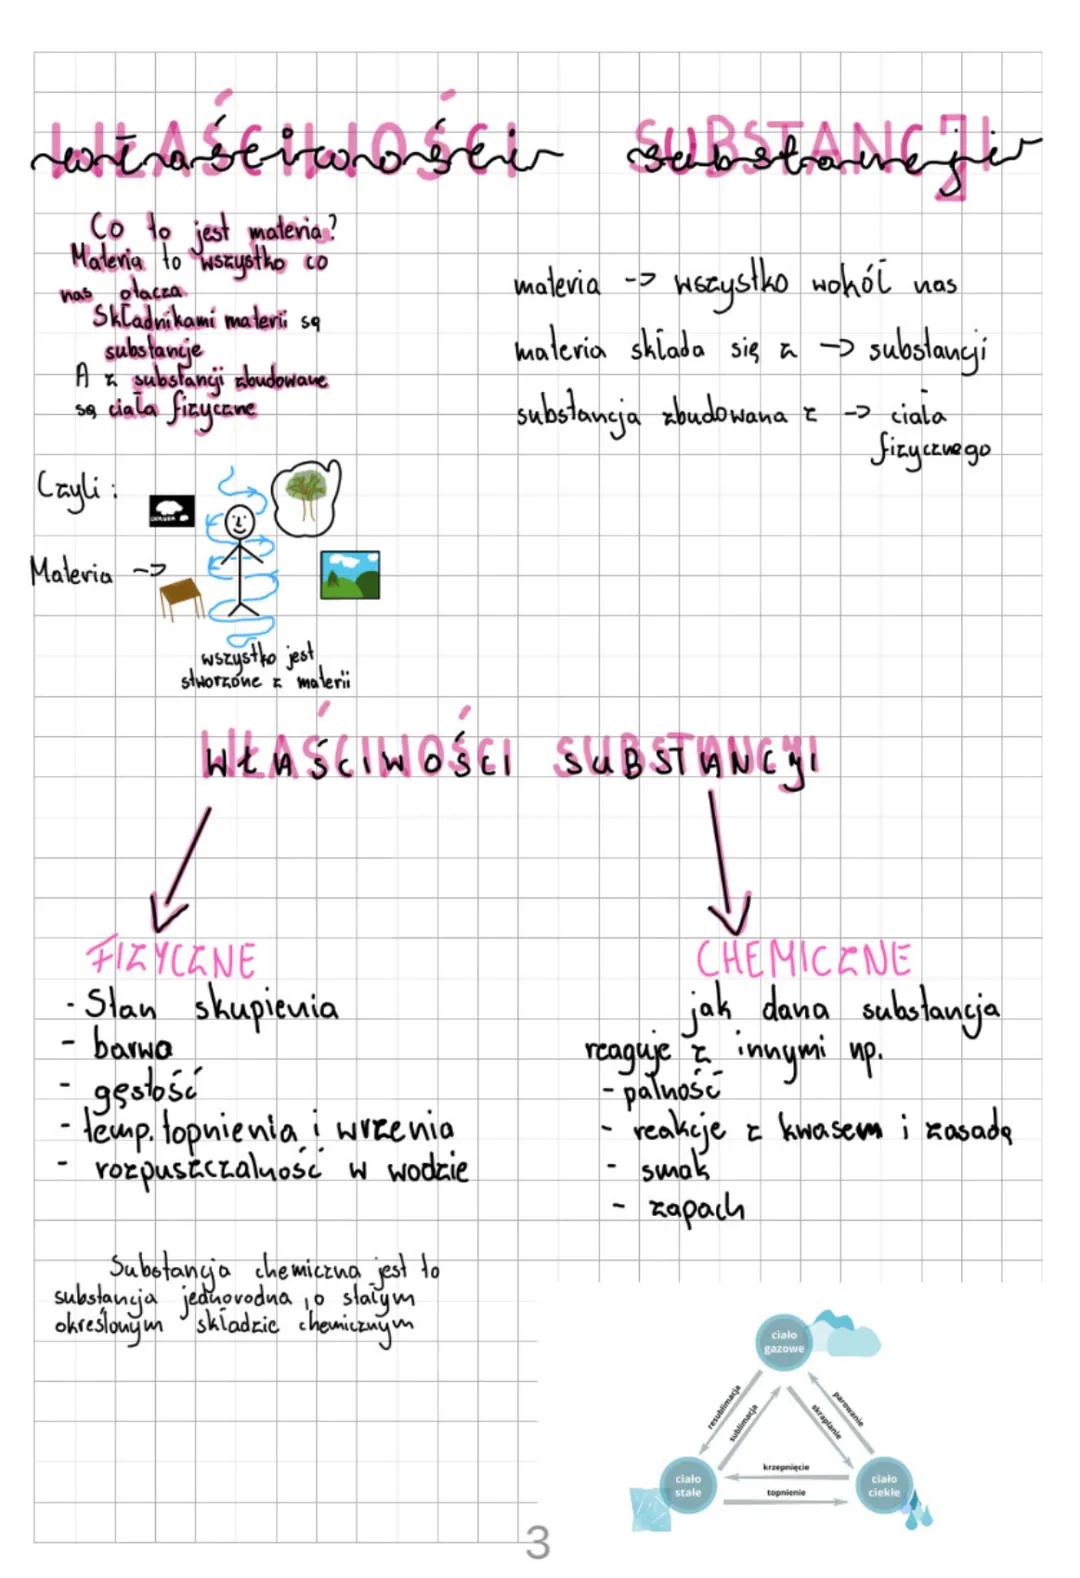 WŁAŚCIWOŚCI SUBSTANCJI
właściwości substancji
Co to jest materia?
Materia to wszystko co
nas otacza
Składnikami materii są
substancje
A z substancji zbudowane
są ciała fizyczne
materia -> wszystko wokół nas
materia składa się z -> substancji
substancja zbudowana z -> ciała
fizycznego
Czyli:
Materia ->
wszystko jest
stworzone z materii
WŁAŚCIWOŚCI SUBSTANCYI
FIZYCZNE
- Stan skupienia
- barwa
- gęstość
- temp. topnienia i wrzenia
- rozpuszczalność w wodzie
CHEMICZNE
jak dana substancja
reaguje z innymi np.
- palność
- reakcje z kwasem i zasadą
- smak
- zapach
Substancja chemiczna jest to
substancja jednorodna, o stałym
określonym składzie chemicznym
ciało
gazowe
resublimacja
sublimacja
skraplanie
parowanie
krzepnięcie
topnienie
ciało
stałe
ciało
ciekłe
3